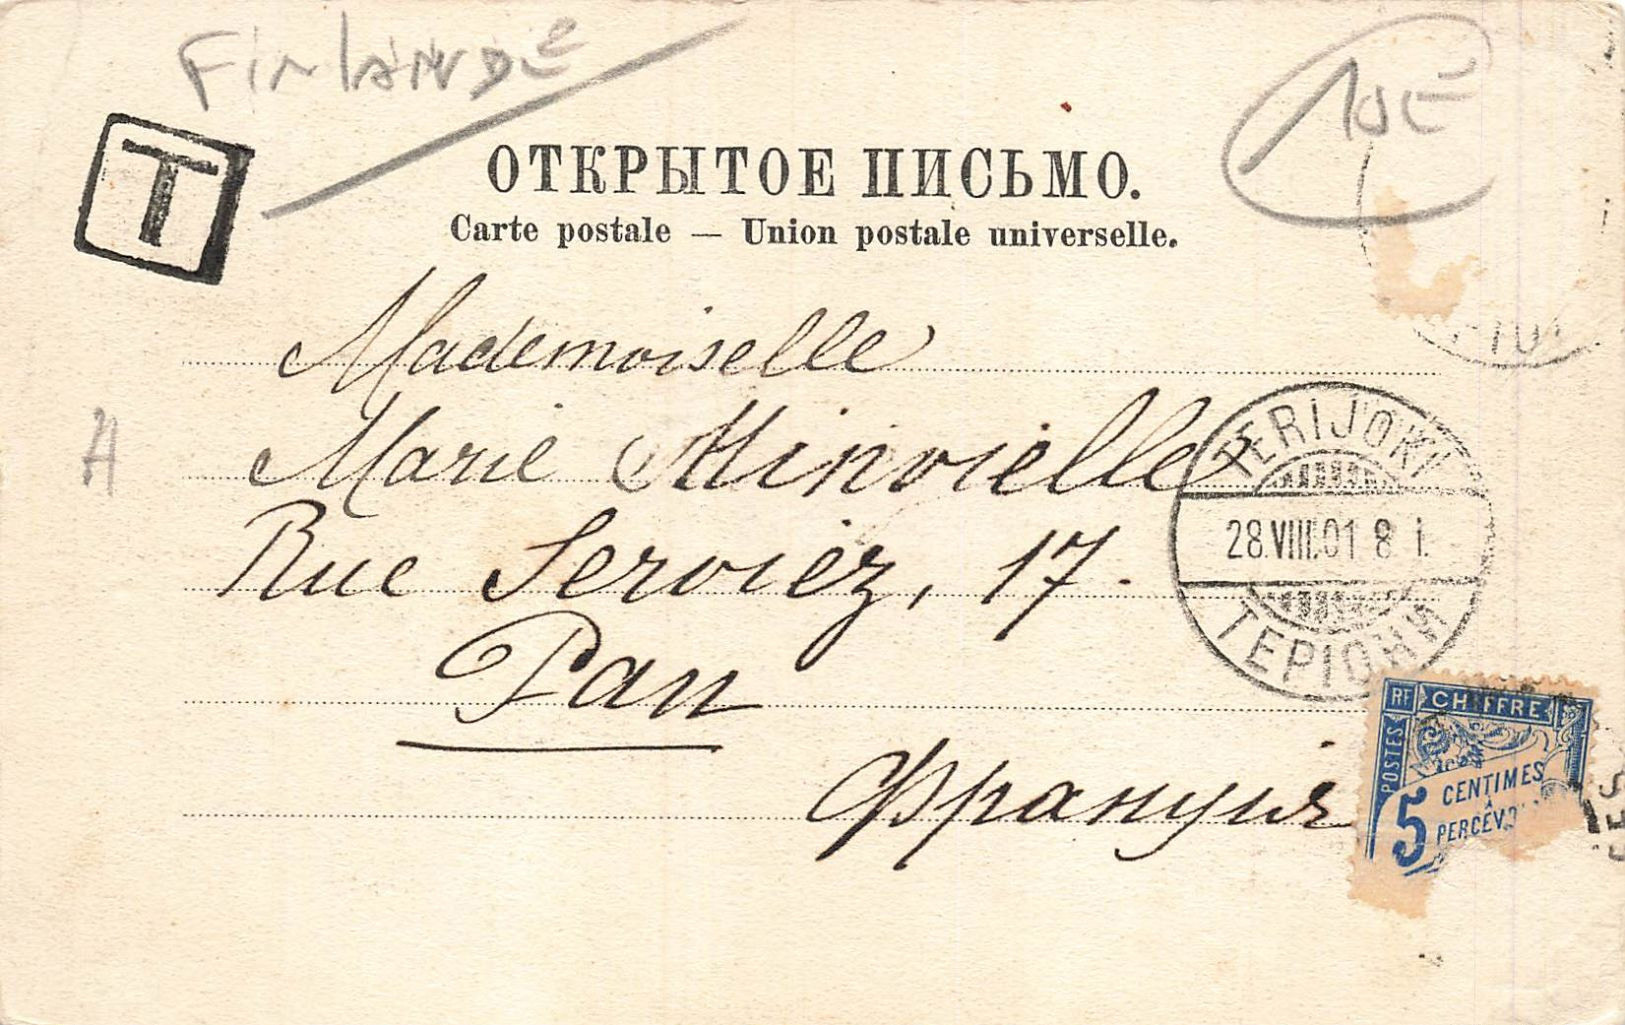 FINLANDE
10€
T
ОТКРЫТОЕ ПИСЬМО.
Carte postale — Union postale universelle.
Mademoiselle
Marie Minvielle
Rue Serviez, 17.
Pau
Франція
H
TERIJOKI
28.VIII.01 8 I.
ТЕРІОКИ
RF CHIFFRE
POSTES
5 CENTIMES
À
PERCEV